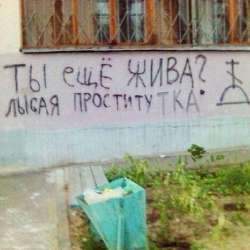 ТЫ ещЁ ЖИВА?
ЛЫСАЯ ПРОСТИТУТКА